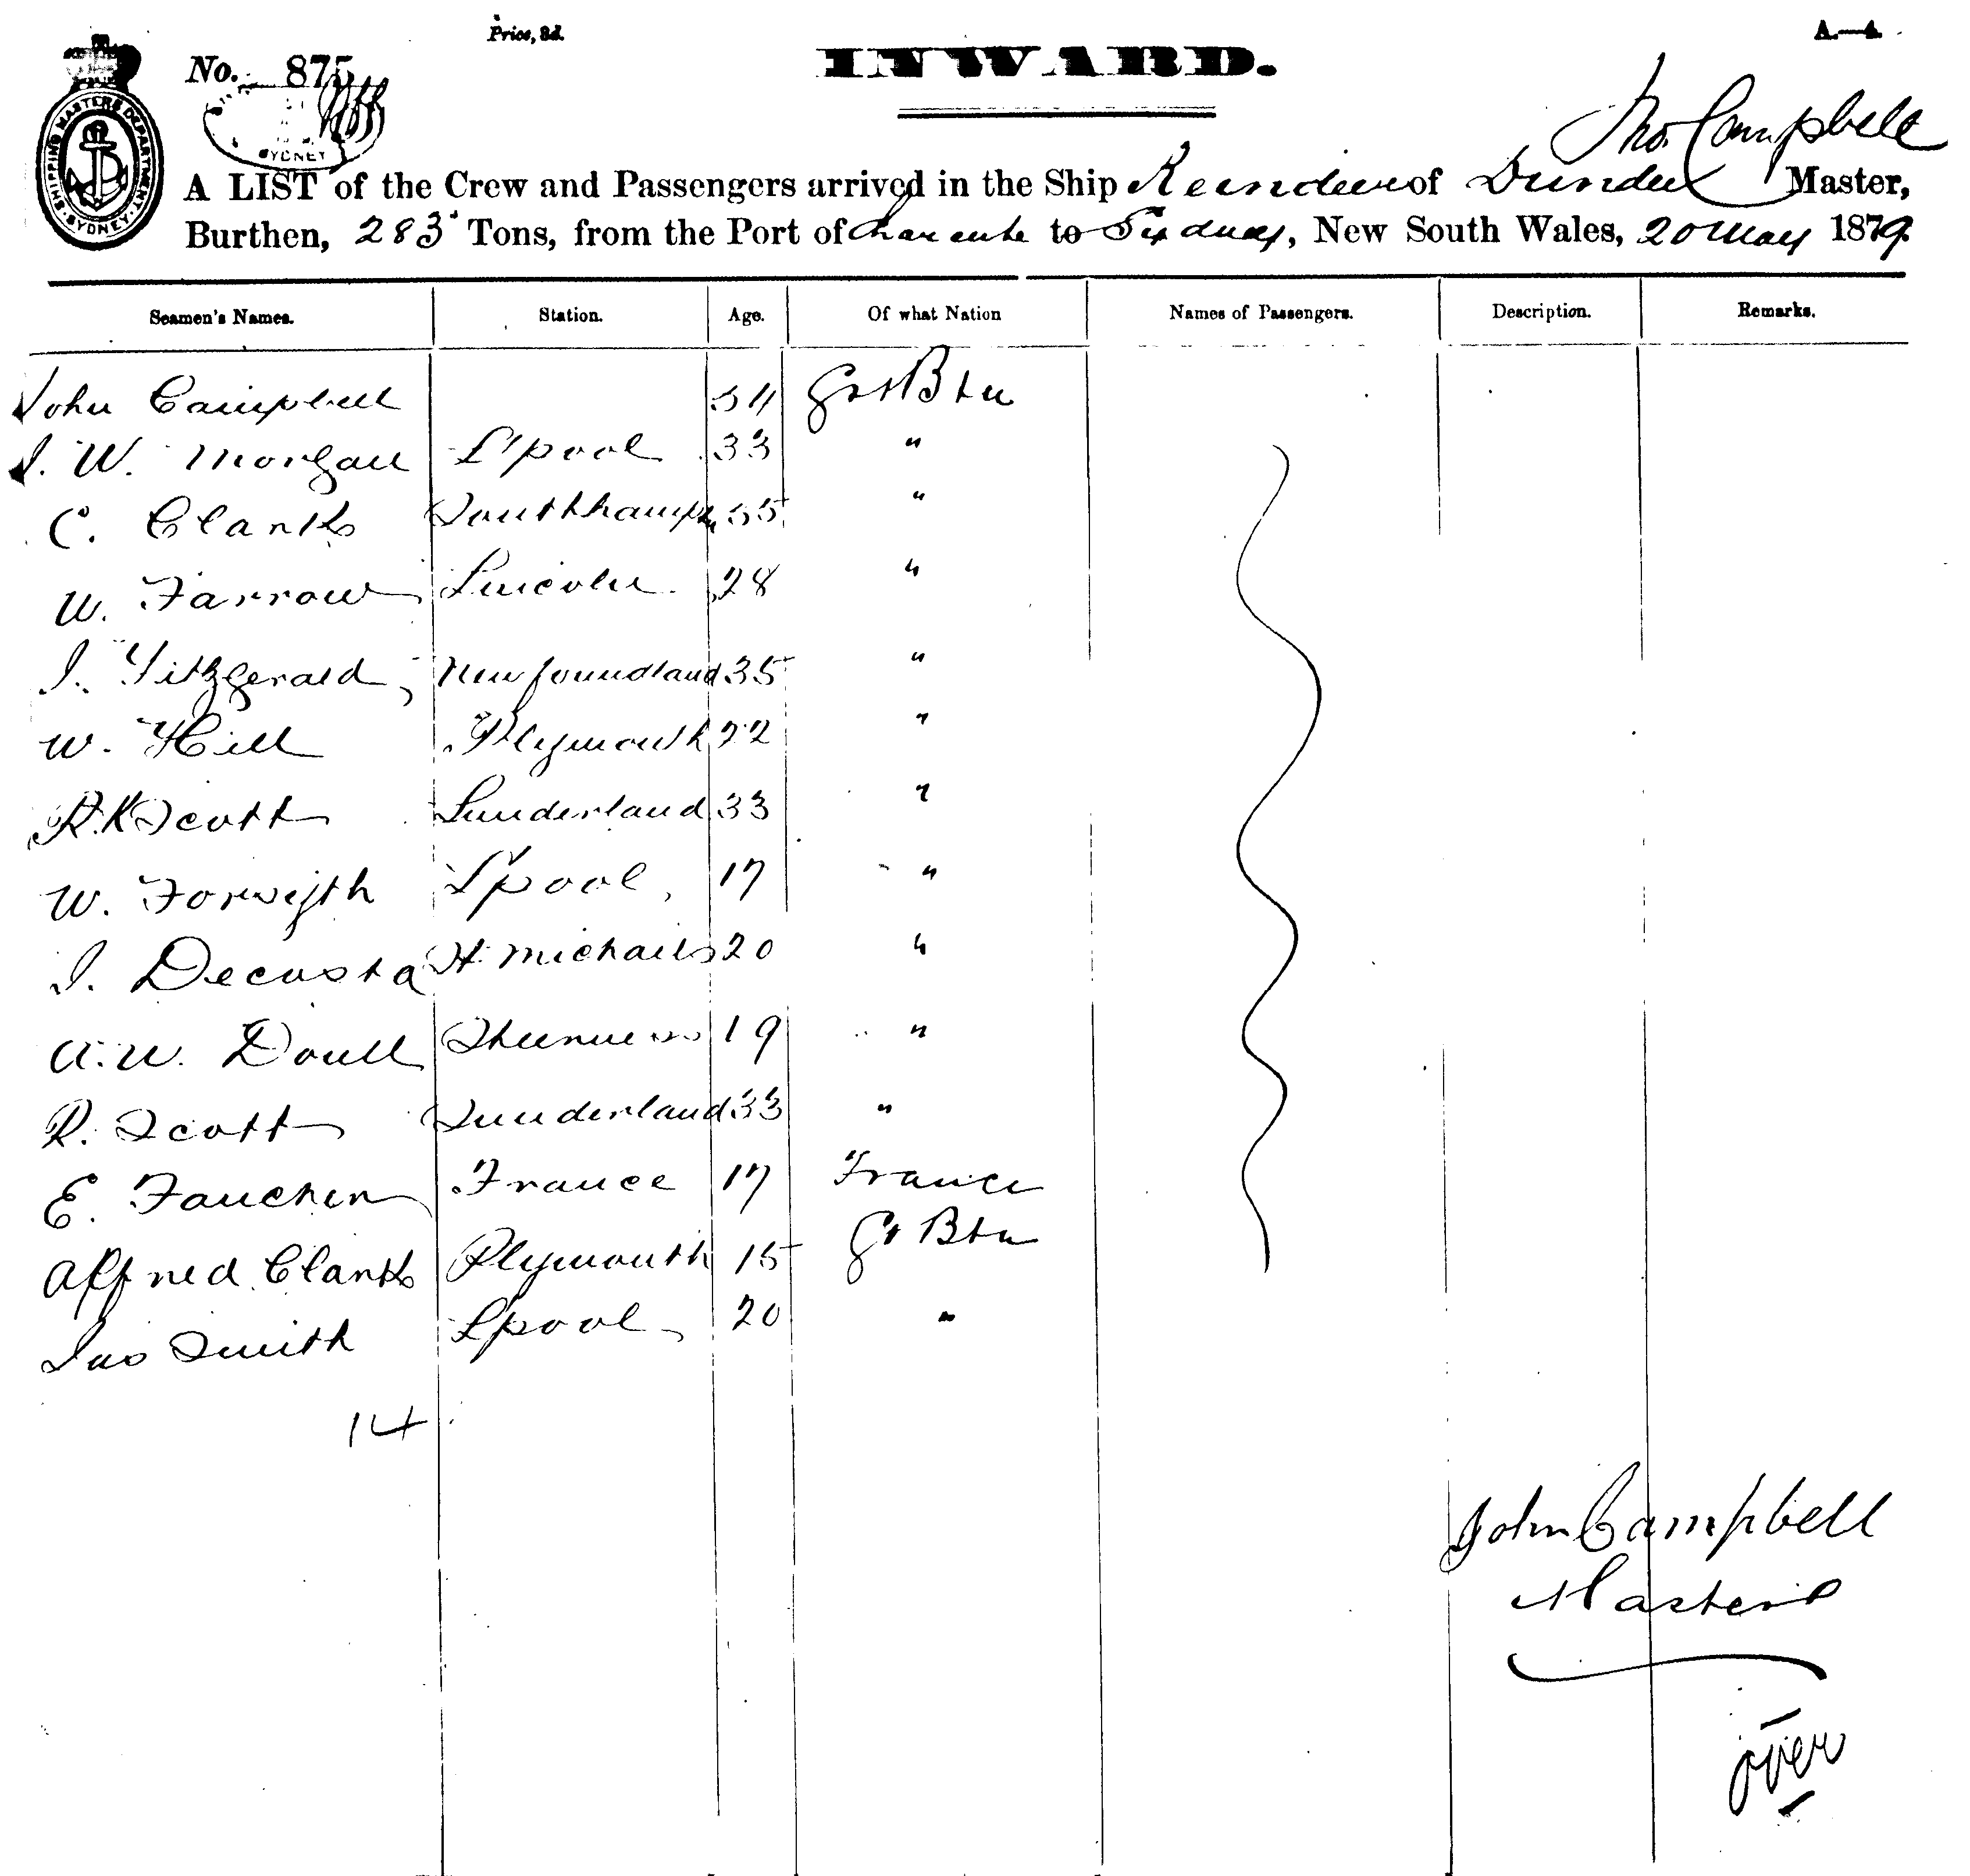 Price, 3d.
A.—4.
No. 875
INWARD.
SHIPPING MASTERS DEPARTMENT. SYDNEY
SYDNEY
Jno. Campbell
A LIST of the Crew and Passengers arrived in the Ship Reindeer of Dundee Master,
Burthen, 283 Tons, from the Port of Charente to Sydney, New South Wales, 20 May 1879.
Seamen's Names. Station. Age. Of what Nation Names of Passengers. Description. Remarks.
John Campbell 54 Grt Btn
J. W. Morgan L'pool 33 "
C. Clark Southhampn 55 "
W. Farrow Lincoln 28 "
J. Fitzgerald, Newfoundland 35 "
W. Hill Plymouth 22 "
R. K Scott Sunderland 33 "
W. Forsyth L'pool, 17 "
J. Decosta St. Michaels 20 "
A. W. Doull Sheerness 19 "
R. Scott Sunderland 33 "
E. Fauchen France 17 France
Alfred Clark Plymouth 15 Gt Btn
Jas Smith Lpool 20 "
14
John Campbell
Master
over